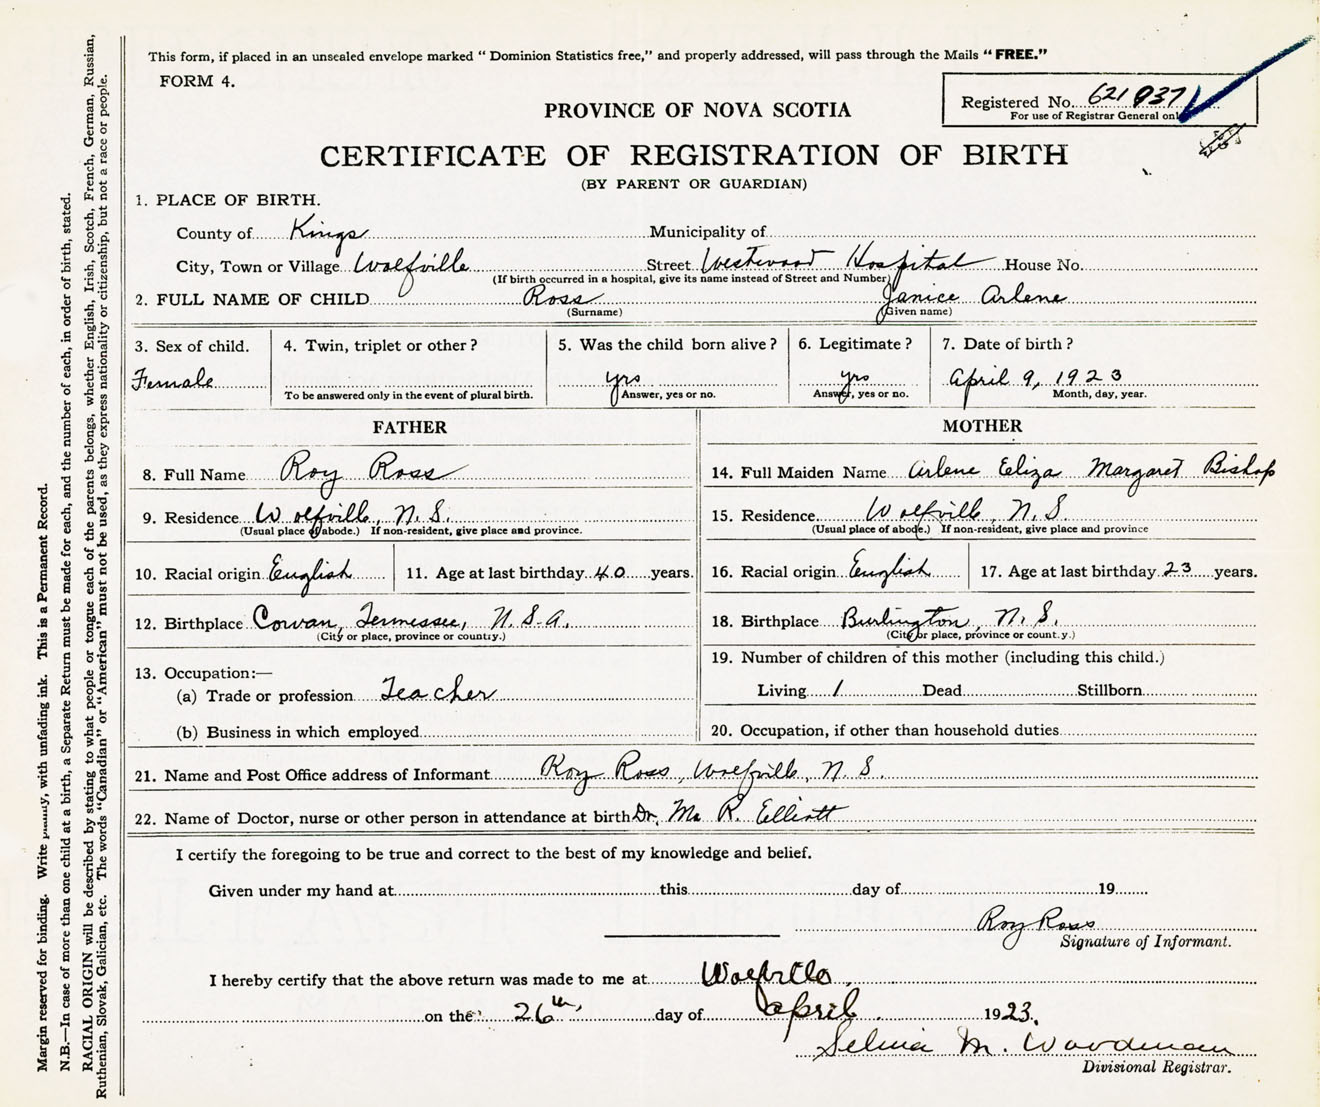 This form, if placed in an unsealed envelope marked “ Dominion Statistics free,” and properly addressed, will pass through the Mails “ FREE.”
FORM 4.
Registered No. 621937
For use of Registrar General only
PROVINCE OF NOVA SCOTIA
CERTIFICATE OF REGISTRATION OF BIRTH
(BY PARENT OR GUARDIAN)
1. PLACE OF BIRTH.
County of Kings Municipality of
City, Town or Village Wolfville Street Westwood Hospital House No.
(If birth occurred in a hospital, give its name instead of Street and Number)
2. FULL NAME OF CHILD Ross Janice Arlene
(Surname) (Given name)
3. Sex of child. 4. Twin, triplet or other? 5. Was the child born alive? 6. Legitimate? 7. Date of birth?
Female yes yes April 9, 1923
To be answered only in the event of plural birth. Answer, yes or no. Answer, yes or no. Month, day, year.
FATHER MOTHER
8. Full Name Roy Ross 14. Full Maiden Name Arlene Eliza Margaret Bishop
9. Residence Wolfville, N.S. 15. Residence Wolfville, N.S.
(Usual place of abode.) If non-resident, give place and province. (Usual place of abode.) If non-resident, give place and province
10. Racial origin English 11. Age at last birthday 40 years. 16. Racial origin English 17. Age at last birthday 23 years.
12. Birthplace Cowan, Tennessee, U.S.A. 18. Birthplace Burlington, N.S.
(City or place, province or country.) (City or place, province or country.)
13. Occupation:— 19. Number of children of this mother (including this child.)
(a) Trade or profession Teacher Living 1 Dead Stillborn
(b) Business in which employed 20. Occupation, if other than household duties
21. Name and Post Office address of Informant Roy Ross, Wolfville, N.S.
22. Name of Doctor, nurse or other person in attendance at birth Dr. M. R. Elliott
I certify the foregoing to be true and correct to the best of my knowledge and belief.
Given under my hand at this day of 19
Roy Ross
Signature of Informant.
I hereby certify that the above return was made to me at Wolfville,
on the 26th day of April 1923.
Selina M. Woodman
Divisional Registrar.
Margin reserved for binding. Write with unfading ink. This is a Permanent Record.
N.B.—In case of more than one child at a birth, a Separate Return must be made for each, and the number of each, in order of birth, stated.
RACIAL ORIGIN will be described by stating to what people or tongue each of the parents belongs, whether English, Irish, Scotch, French, German, Russian,
Ruthenian, Slovak, Galician, etc. The words “Canadian” or “American” must not be used, as they express nationality or citizenship, but not a race or people.